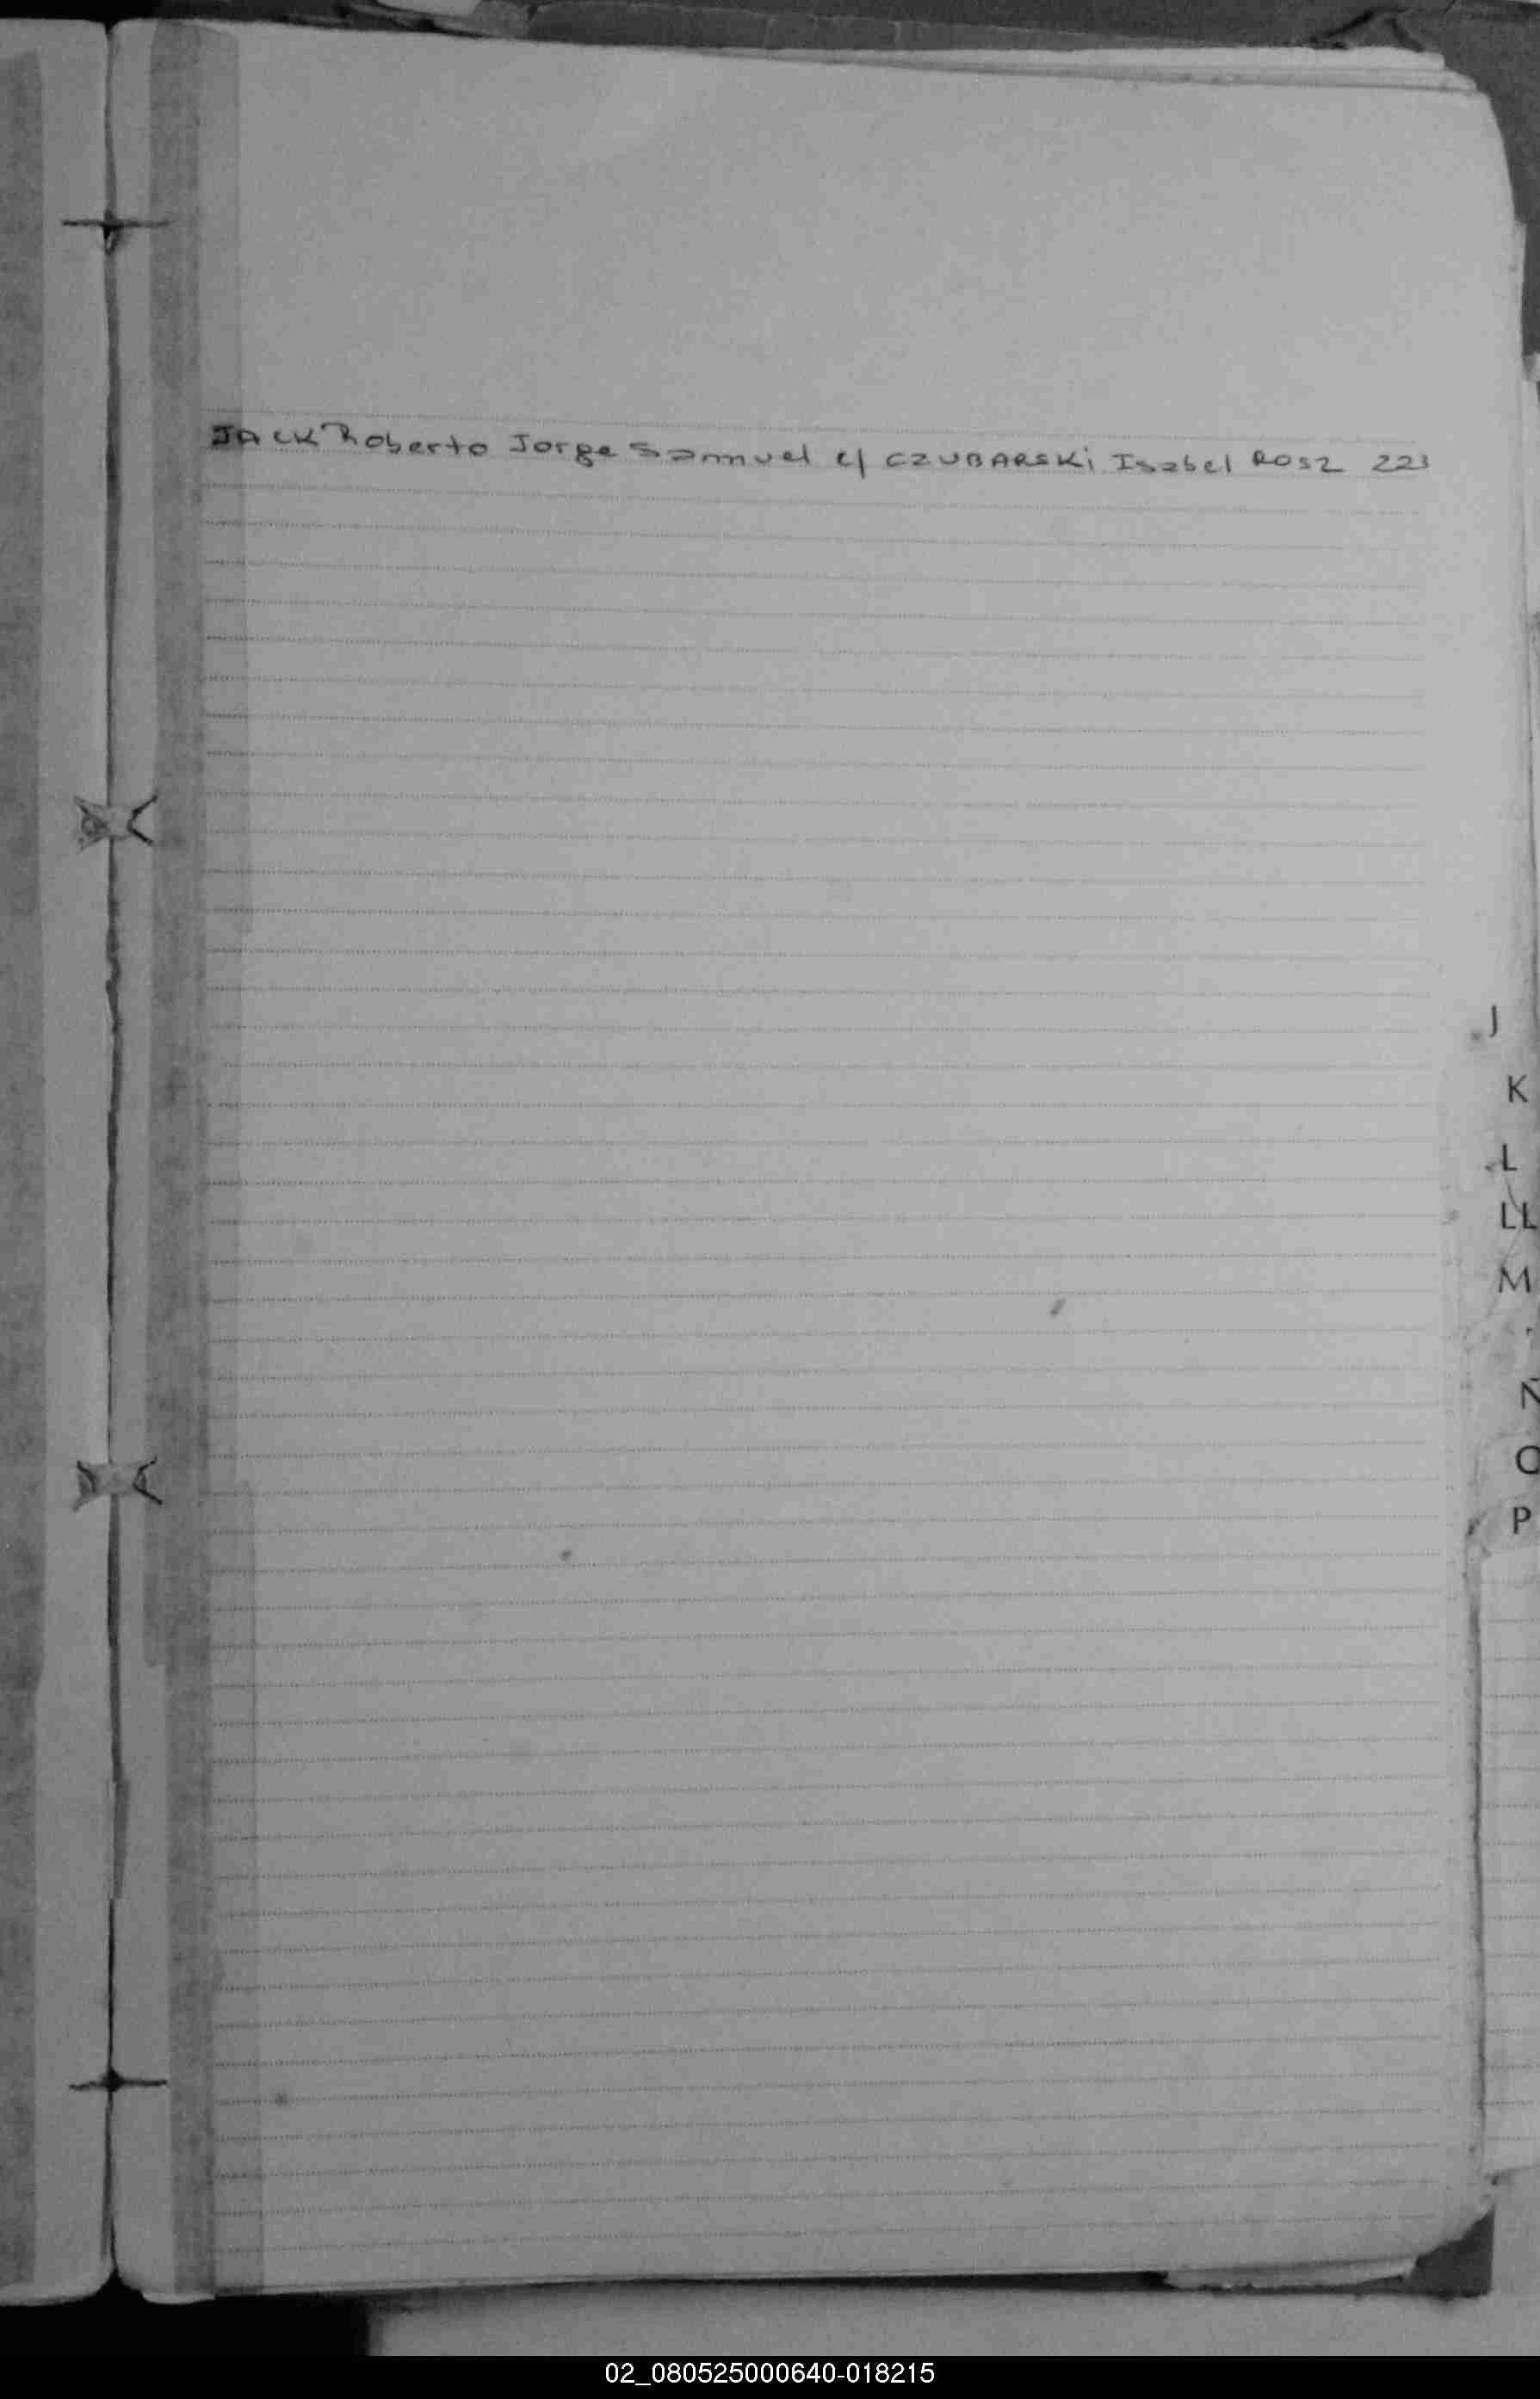 JACK Roberto Jorge Sammuel c/ CZUBARSKi Isabel ROSZ 223
J
K
L
LL
M
Ñ
O
P
02_080525000640-018215